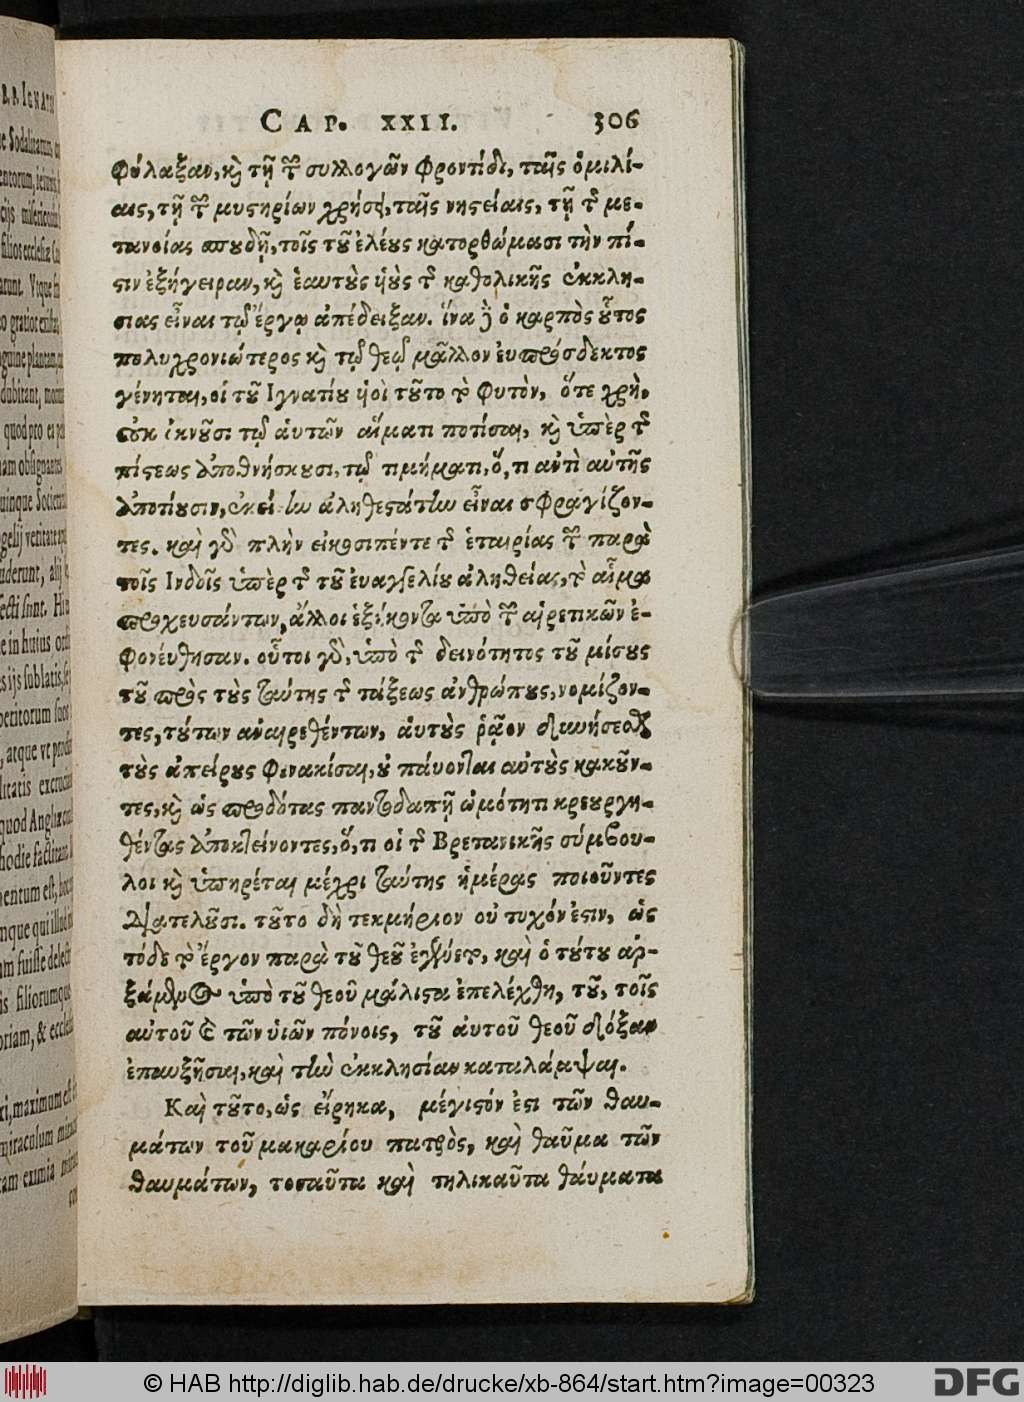 B. P. IGNATII
CAP. XXII. 306
φύλαξαν, καὶ τῇ τῶν συλλογῶν φροντίδι, ταῖς ὁμιλί-
αις, τῇ τῶν μυστηρίων χρήσει, ταῖς νηστείαις, τῇ τῆς με-
τανοίας σπουδῇ, τοῖς τοῦ ἐλέους κατορθώμασι τὴν πί-
στιν ἐξήγειραν, καὶ ἑαυτοὺς υἱοὺς τῆς καθολικῆς ἐκκλη-
σίας εἶναι τῷ ἔργῳ ἀπέδειξαν. ἵνα δὲ ὁ καρπὸς οὗτος
πολυχρονιώτερος καὶ τῷ θεῷ μᾶλλον εὐπρόσδεκτος
γένηται, οἱ τοῦ Ιγνατίου υἱοὶ τοῦτο τὸ φυτὸν, ὅτε χρὴ,
οὐκ ὀκνοῦσι τῷ αὑτῶν αἵματι ποτίσαι, καὶ ὑπὲρ τῆς
πίστεως ἀποθνήσκουσι, τῷ τιμήματι, ὅ, τι ἀντὶ αὐτῆς
ἀποτίουσιν, ἐκείνην ἀληθεστάτην εἶναι σφραγίζον-
τες. καὶ γὰρ πλὴν εἰκοσιπέντε τῆς ἑταιρίας τῶν παρὰ
τοῖς Ινδοῖς ὑπὲρ τῆς τοῦ εὐαγγελίου ἀληθείας, τὸ αἷμα
προχευσάντων, ἄλλοι ἑξήκοντα ὑπὸ τῶν αἱρετικῶν ἐ-
φονεύθησαν. οὗτοι γὰρ, ὑπὸ τῆς δεινότητος τοῦ μίσους
τοῦ πρὸς τοὺς ταύτης τῆς τάξεως ἀνθρώπους, νομίζον-
τες, τούτων ἀναιρεθέντων, ἑαυτοὺς ῥᾷον δυνήσεσθαι
τοὺς ἀπείρους φενακίσαι, οὐ παύονται αὐτοὺς κακοῦν-
τες, καὶ ὡς προδότας παντοδαπῇ ὠμότητι κρεουργη-
θέντας ἀποκτείνοντες, ὅ, τι οἱ τῆς Βρετανικῆς σύμβου-
λοι καὶ ὑπηρέται μέχρι ταύτης ἡμέρας ποιοῦντες
διατελοῦσι. τοῦτο δὴ τεκμήριον οὐ τυχόν ἐστιν, ὡς
τόδε τὸ ἔργον παρὰ τοῦ θεοῦ ἐγένετο, καὶ ὁ τούτου ἀρ-
ξάμενος ὑπὸ τοῦ θεοῦ μάλιστα ἐπελέχθη, τοῦ, τοῖς
αὐτοῦ καὶ τῶν υἱῶν πόνοις, τοῦ αὐτοῦ θεοῦ δόξαν
ἐπαυξῆσαι, καὶ τὴν ἐκκλησίαν καταλάμψαι.
Καὶ τοῦτο, ὡς εἴρηκα, μέγιστόν ἐστι τῶν θαυ-
μάτων τοῦ μακαρίου πατρὸς, καὶ θαῦμα τῶν
θαυμάτων, τοσαῦτα καὶ τηλικαῦτα θαύματα
© HAB http://diglib.hab.de/drucke/xb-864/start.htm?image=00323
DFG